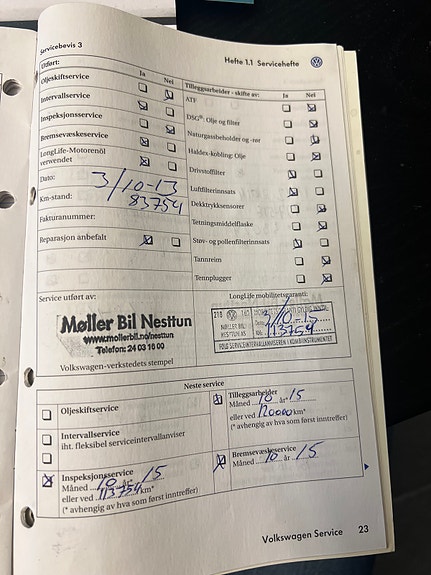 Servicebevis 3
Hefte 1.1 Servicehefte
Utført:
Ja Nei
Oljeskiftservice
Intervallservice
Inspeksjonsservice
Bremsevæskeservice
LongLife-Motorenöl
verwendet
Dato: 3/10-13
Km-stand: 83754
Fakturanummer:
Reparasjon anbefalt
Tilleggsarbeider - skifte av:
Ja Nei
ATF
DSG®: Olje og filter
Naturgassbeholder og -rør
Haldex-kobling: Olje
Drivstoffilter
Luftfilterinnsats
Dekktrykksensorer
Tetningsmiddelflaske
Støv- og pollenfilterinnsats
Tannreim
Tennplugger
Service utført av:
Møller Bil Nesttun
www.mollerbil.no/nesttun
Telefon: 24 03 16 00
Volkswagen-verkstedets stempel
LongLife mobilitetsgaranti:
218
MØLLER BI
NESTTUN AS
3/10-15
113754
FØLG SERVICEINTERVALLANVISEREN I KOMBIINSTRUMENTET
Neste service
Oljeskiftservice
Intervallservice
iht. fleksibel serviceintervallanviser
Inspeksjonsservice
Måned 10 år* 15
eller ved 113754 km*
(* avhengig av hva som først inntreffer)
Tilleggsarbeider
Måned 10 år* 15
eller ved 120000 km*
(* avhengig av hva som først inntreffer)
Bremsevæskeservice
Måned 10 år 15
Volkswagen Service 23